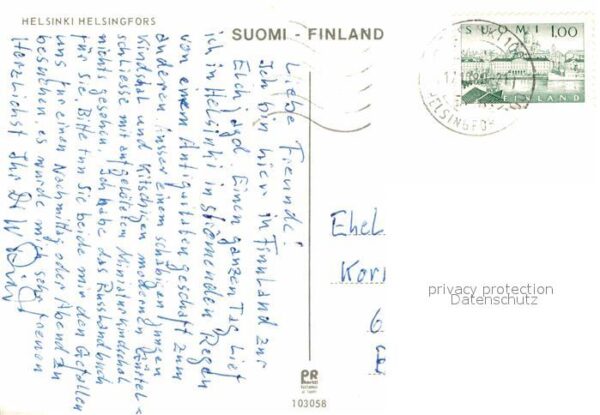 HELSINKI HELSINGFORS
SUOMI - FINLAND
SUOMI 1.00
FINLAND
HELSINGFORS
Liebe Freunde!
Ich bin hier in Finnland zur
Elchjagd. Einen ganzen Tag lief
ich in Helsinki in strömenden Regen
von einem Antiquitätengeschäft zum
anderen. Ausser einem schäbigen jungen
Kindschal und kitschigen modernen Gürtel-
schliesse mit aufgelöteten
nicht gesehen. Ich habe das Russlandbuch
für Sie. Bitte tun Sie beide mir den Gefallen
uns für einen Nachmittag oder Abend zu
besuchen es würde mich sehr freuen
Herzlichst Ihr
Ehel
Kor
6
privacy protection
Datenschutz
PR
103058